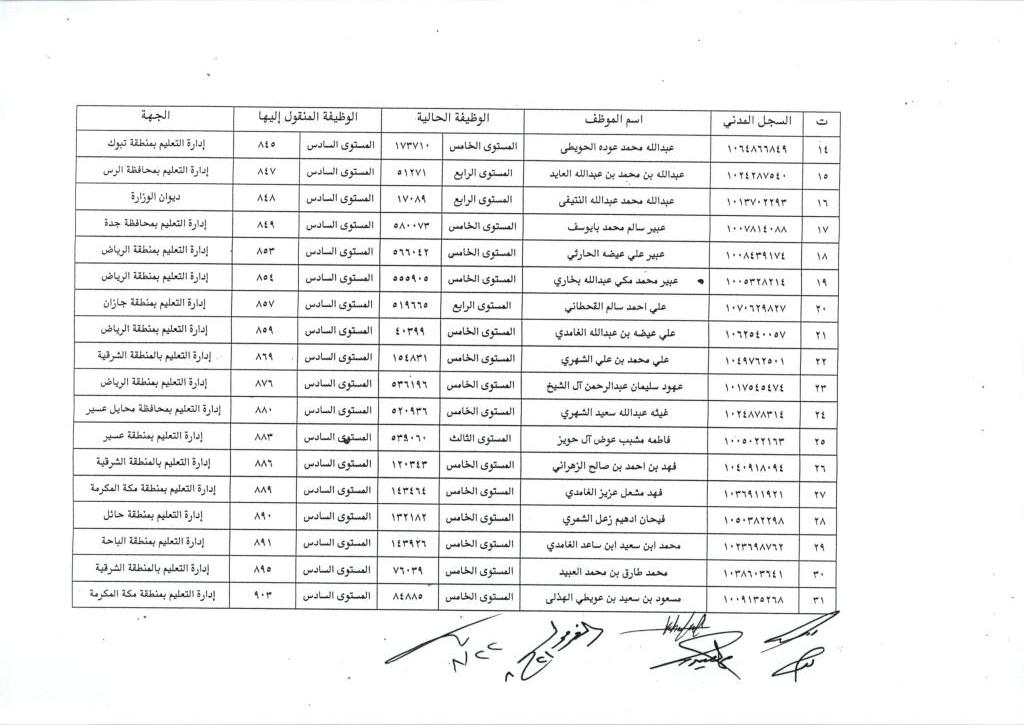 ت السجل المدني اسم الموظف الوظيفة الحالية الوظيفة المنقول إليها الجهة
١٤ ١٠٦٤٨٦٦٨٤٩ عبدالله محمد عوده الحويطى المستوى الخامس ١٧٣٧١٠ المستوى السادس ٨٤٥ إدارة التعليم بمنطقة تبوك
١٥ ١٠٢٤٢٨٧٥٤٠ عبدالله بن محمد بن عبدالله العايد المستوى الرابع ٥١٢٧١ المستوى السادس ٨٤٧ إدارة التعليم بمحافظة الرس
١٦ ١٠١٣٧٠٢٢٩٣ عبدالله محمد عبدالله النتيفى المستوى الرابع ١٧٠٨٩ المستوى السادس ٨٤٨ ديوان الوزارة
١٧ ١٠٠٧٨١٤٠٨٨ عبير سالم محمد بايوسف المستوى الخامس ٥٨٠٠٧٣ المستوى السادس ٨٤٩ إدارة التعليم بمحافظة جدة
١٨ ١٠٠٨٤٣٩١٧٤ عبير علي عيضه الحارثي المستوى الخامس ٥٦٦٠٤٢ المستوى السادس ٨٥٣ إدارة التعليم بمنطقة الرياض
١٩ ١٠٠٥٣٢٨٢١٤ عبير محمد مكي عبدالله بخاري المستوى الخامس ٥٥٥٩٠٥ المستوى السادس ٨٥٤ إدارة التعليم بمنطقة الرياض
٢٠ ١٠٧٠٦٢٩٨٢٧ علي احمد سالم القحطاني المستوى الرابع ٥١٩٦٦٥ المستوى السادس ٨٥٧ إدارة التعليم بمنطقة جازان
٢١ ١٠٦٢٥٤٠٠٥٧ علي عيضه بن عبدالله الغامدي المستوى الخامس ٤٠٣٩٩ المستوى السادس ٨٥٩ إدارة التعليم بمنطقة الرياض
٢٢ ١٠٤٩٧٦٢٥٠١ علي محمد بن علي الشهري المستوى الخامس ١٥٤٨٣١ المستوى السادس ٨٦٩ إدارة التعليم بالمنطقة الشرقية
٢٣ ١٠١٧٥٤٥٤٧٤ عهود سليمان عبدالرحمن آل الشيخ المستوى الخامس ٥٣٦١٩٦ المستوى السادس ٨٧٦ إدارة التعليم بمنطقة الرياض
٢٤ ١٠٢٤٨٧٨٣١٤ غيثه عبدالله سعيد الشهري المستوى الخامس ٥٢٠٩٣٦ المستوى السادس ٨٨٠ إدارة التعليم بمحافظة محايل عسير
٢٥ ١٠٠٥٠٢٢١٦٣ فاطمه مشبب عوض آل حويز المستوى الثالث ٥٣٩٠٦٠ المستوى السادس ٨٨٣ إدارة التعليم بمنطقة عسير
٢٦ ١٠٤٠٩١٨٠٩٤ فهد بن احمد بن صالح الزهراني المستوى الخامس ١٢٠٣٤٣ المستوى السادس ٨٨٦ إدارة التعليم بالمنطقة الشرقية
٢٧ ١٠٣٦٩١١٩٢١ فهد مشعل عزيز الغامدي المستوى الخامس ١٤٣٤٦٤ المستوى السادس ٨٨٩ إدارة التعليم بمنطقة مكة المكرمة
٢٨ ١٠٥٠٣٨٢٢٩٨ فيحان ادهيم زعل الشمري المستوى الخامس ١٣٢١٨٢ المستوى السادس ٨٩٠ إدارة التعليم بمنطقة حائل
٢٩ ١٠٢٣٦٩٨٧٦٢ محمد ابن سعيد ابن ساعد الغامدي المستوى الخامس ١٤٣٩٢٦ المستوى السادس ٨٩١ إدارة التعليم بمنطقة الباحة
٣٠ ١٠٣٨٦٠٣٦٤١ محمد طارق بن محمد العبيد المستوى الخامس ٧٦٠٣٩ المستوى السادس ٨٩٥ إدارة التعليم بالمنطقة الشرقية
٣١ ١٠٠٩١٣٥٢٦٨ مسعود بن سعيد بن عويطي الهذلى المستوى الخامس ٨٤٨٨٥ المستوى السادس ٩٠٣ إدارة التعليم بمنطقة مكة المكرمة